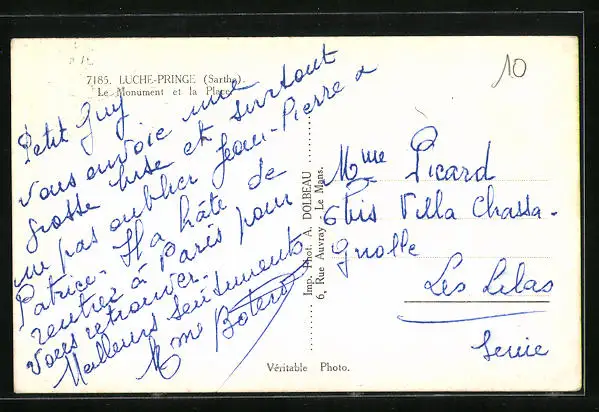 10
7185. LUCHE-PRINGE (Sarthe).
Le Monument et la Place
Petit Guy
vous envoie une
grosse bise et surtout
ne pas oublier Jean-Pierre &
Patrice. Il a hâte de
rentrer à Paris pour
vous retrouver.
Meilleurs sentiments
Mme
Imp. Phot. A. DOLBEAU
6, Rue Auvray - Le Mans.
Mme Picard
6 bis Villa Chassa-
gnolle
Les Lilas
Seine
Véritable Photo.